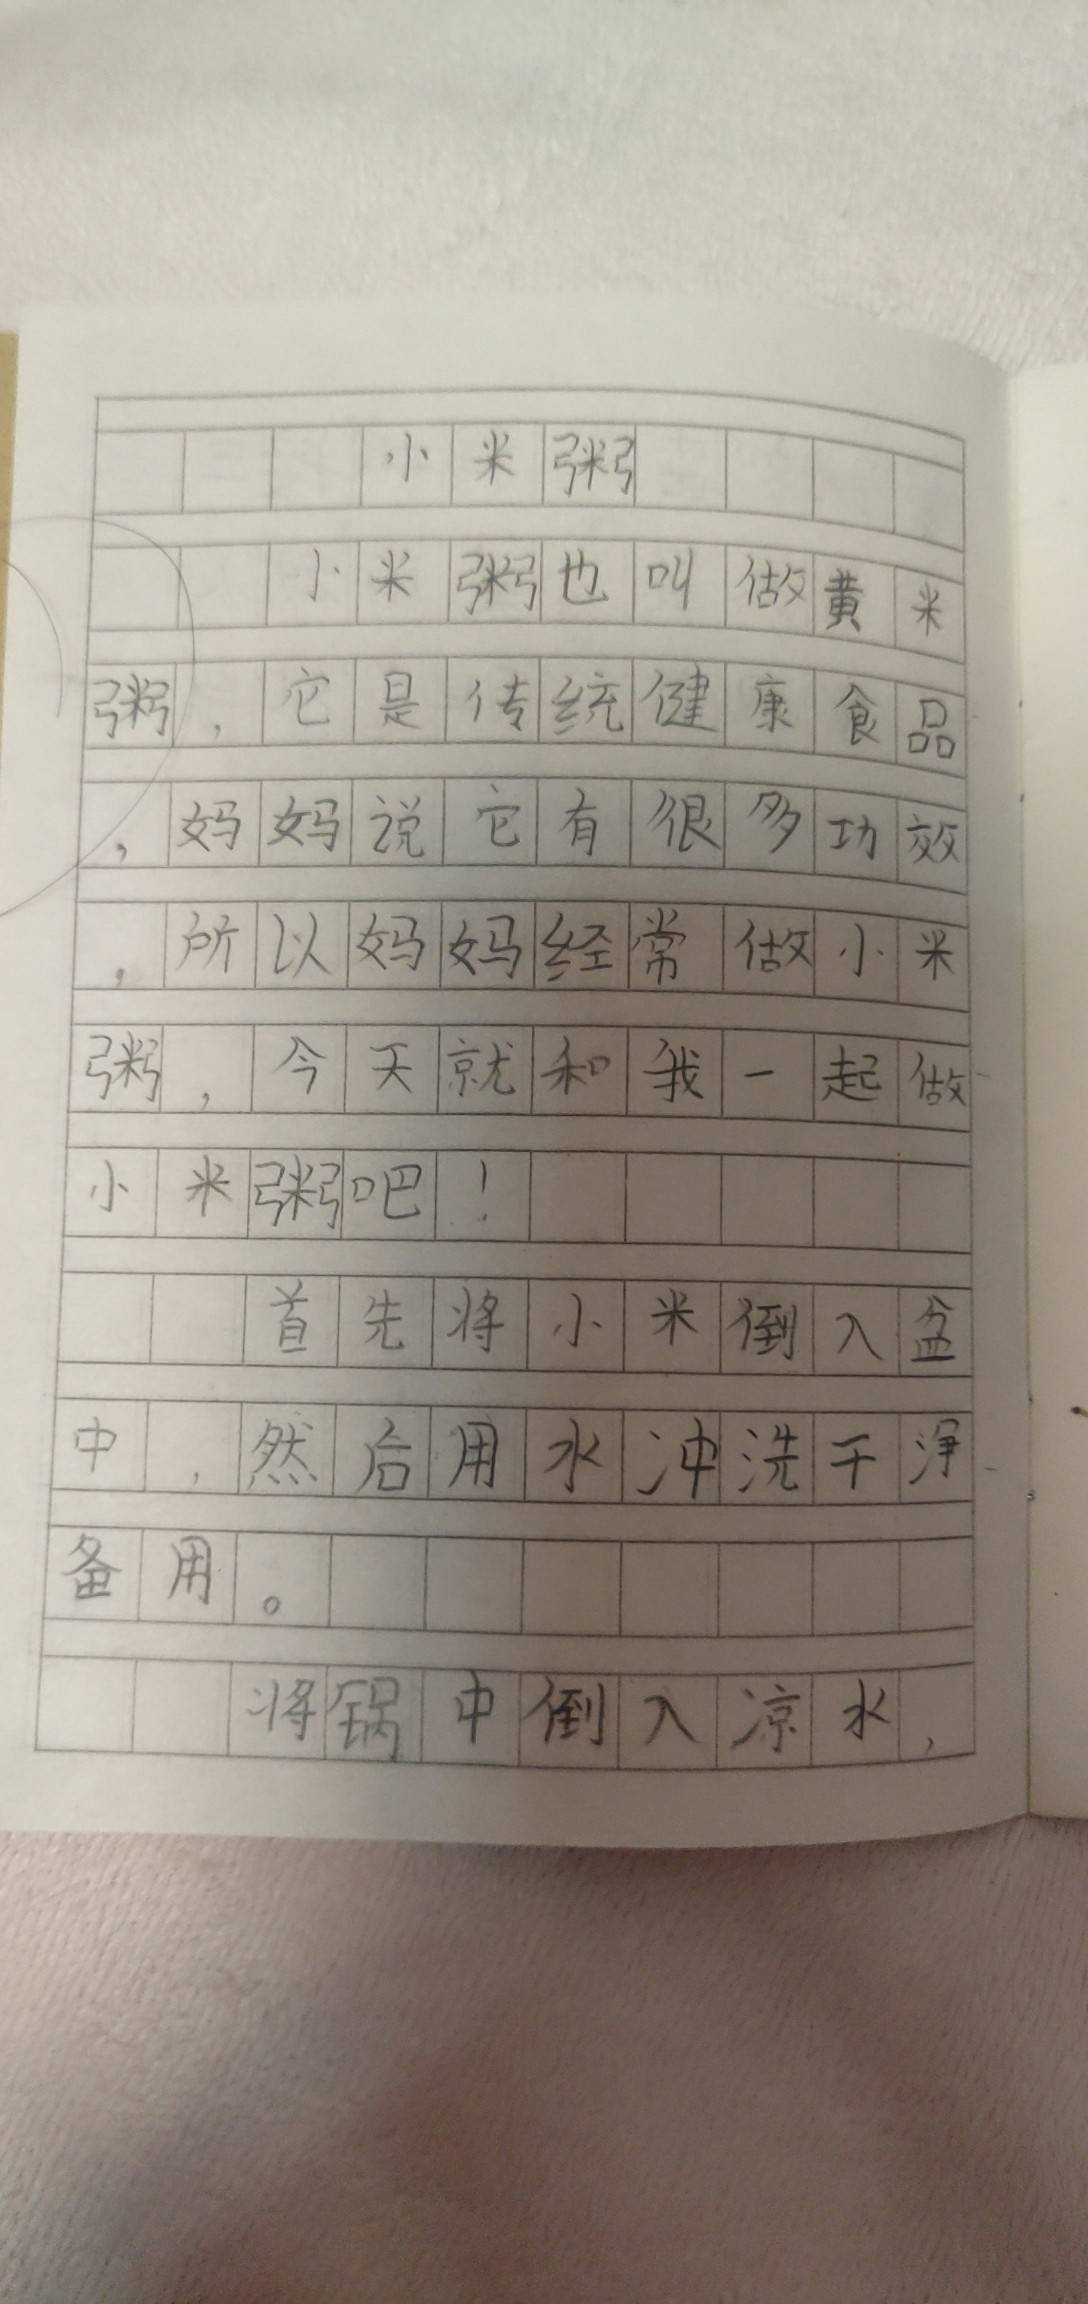 小米粥
小米粥也叫做黄米
粥，它是传统健康食品
，妈妈说它有很多功效
，所以妈妈经常做小米
粥，今天就和我一起做
小米粥吧！
首先将小米倒入盆
中，然后用水冲洗干净
备用。
将锅中倒入凉水，